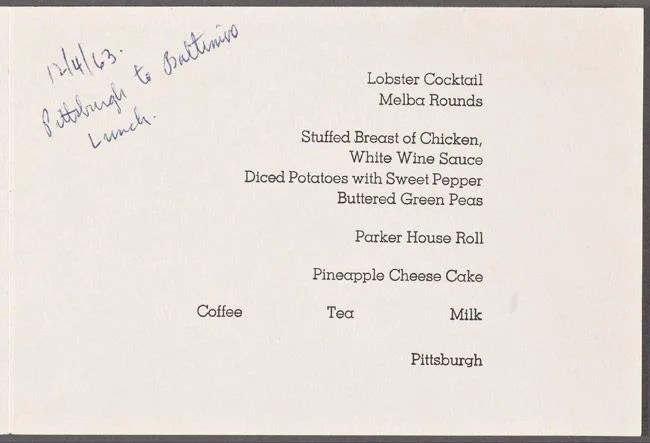 12/4/63.
Pittsburgh to Baltimore
Lunch.
Lobster Cocktail
Melba Rounds
Stuffed Breast of Chicken,
White Wine Sauce
Diced Potatoes with Sweet Pepper
Buttered Green Peas
Parker House Roll
Pineapple Cheese Cake
Coffee Tea Milk
Pittsburgh